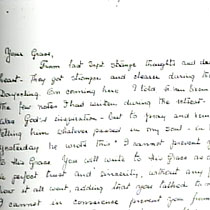 Your Grace,
From last Sept strange thoughts and
heart. They got stronger and clearer during
Darjeeling. On coming here I told
the few notes I had written during the retreat
was God's inspiration - but to pray and
telling him whatever passed in my soul - in
yesterday he wrote this "I cannot prevent
to His Grace. You will write to His Grace as
perfect trust and sincerity, without any
how it all went, adding that you talked
I cannot in conscience prevent you from